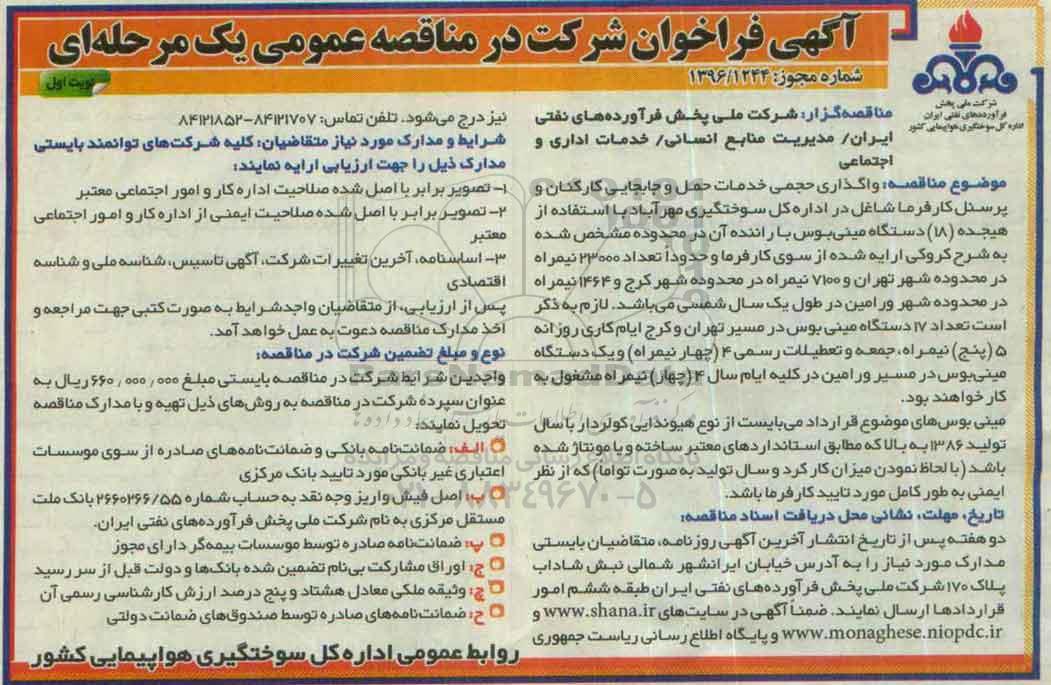 آگهی فراخوان شرکت در مناقصه عمومی یک مرحله‌ای
شماره مجوز: ۱۳۹۶/۱۲۴۴
نوبت اول
شرکت ملی پخش
فرآورده‌های نفتی ایران
اداره کل سوختگیری هواپیمایی کشور
مناقصه‌گزار: شرکت ملی پخش فرآورده‌های نفتی
ایران/ مدیریت منابع انسانی/ خدمات اداری و
اجتماعی
موضوع مناقصه: واگذاری حجمی خدمات حمل و جابجایی کارکنان و
پرسنل کارفرما شاغل در اداره کل سوختگیری مهرآباد با استفاده از
هیجده (۱۸) دستگاه مینی‌بوس با راننده آن در محدوده مشخص شده
به شرح کروکی ارایه شده از سوی کارفرما و حدوداً تعداد ۲۳۰۰۰ نیمراه
در محدوده شهر تهران و ۷۱۰۰ نیمراه در محدوده شهر کرج و ۱۴۶۴ نیمراه
در محدوده شهر ورامین در طول یک سال شمسی می‌باشد. لازم به ذکر
است تعداد ۱۷ دستگاه مینی بوس در مسیر تهران و کرج ایام کاری روزانه
۵ (پنج) نیمراه، جمعه و تعطیلات رسمی ۴ (چهار نیمراه) و یک دستگاه
مینی‌بوس در مسیر ورامین در کلیه ایام سال ۴ (چهار) نیمراه مشغول به
کار خواهند بود.
مینی بوس‌های موضوع قرارداد می‌بایست از نوع هیوندایی کولردار با سال
تولید ۱۳۸۶ به بالا که مطابق استانداردهای معتبر ساخته و یا مونتاژ شده
باشد (با لحاظ نمودن میزان کارکرد و سال تولید به صورت تواما) که از نظر
ایمنی به طور کامل مورد تایید کارفرما باشد.
تاریخ، مهلت، نشانی محل دریافت اسناد مناقصه:
دو هفته پس از تاریخ انتشار آخرین آگهی روزنامه، متقاضیان بایستی
مدارک مورد نیاز را به آدرس خیابان ایرانشهر شمالی نبش شاداب
پلاک ۱۷۰ شرکت ملی پخش فرآورده‌های نفتی ایران طبقه ششم امور
قراردادها ارسال نمایند. ضمناً آگهی در سایت‌های www.shana.ir و
www.monaghese.niopdc.ir و پایگاه اطلاع رسانی ریاست جمهوری
نیز درج می‌شود. تلفن تماس: ۸۴۱۲۱۷۰۷-۸۴۱۲۱۸۵۲
شرایط و مدارک مورد نیاز متقاضیان: کلیه شرکت‌های توانمند بایستی
مدارک ذیل را جهت ارزیابی ارایه نمایند:
۱- تصویر برابر با اصل شده صلاحیت اداره کار و امور اجتماعی معتبر
۲- تصویر برابر با اصل شده صلاحیت ایمنی از اداره کار و امور اجتماعی
معتبر
۳- اساسنامه، آخرین تغییرات شرکت، آگهی تاسیس، شناسه ملی و شناسه
اقتصادی
پس از ارزیابی، از متقاضیان واجدشرایط به صورت کتبی جهت مراجعه و
اخذ مدارک مناقصه دعوت به عمل خواهد آمد.
نوع و مبلغ تضمین شرکت در مناقصه:
واجدین شرایط شرکت در مناقصه بایستی مبلغ ۶۶۰٫۰۰۰٫۰۰۰ ریال به
عنوان سپرده شرکت در مناقصه به روش‌های ذیل تهیه و با مدارک مناقصه
تحویل نمایند:
الف: ضمانت‌نامه بانکی و ضمانت‌نامه‌های صادره از سوی موسسات
اعتباری غیر بانکی مورد تایید بانک مرکزی
ب: اصل فیش واریز وجه نقد به حساب شماره ۲۶۶۰۲۶۶/۵۵ بانک ملت
مستقل مرکزی به نام شرکت ملی پخش فرآورده‌های نفتی ایران.
پ: ضمانت‌نامه صادره توسط موسسات بیمه‌گر دارای مجوز
ج: اوراق مشارکت بی‌نام تضمین شده بانک‌ها و دولت قبل از سررسید
چ: وثیقه ملکی معادل هشتاد و پنج درصد ارزش کارشناسی رسمی آن
ح: ضمانت‌نامه‌های صادره توسط صندوق‌های ضمانت دولتی
روابط عمومی اداره کل سوختگیری هواپیمایی کشور